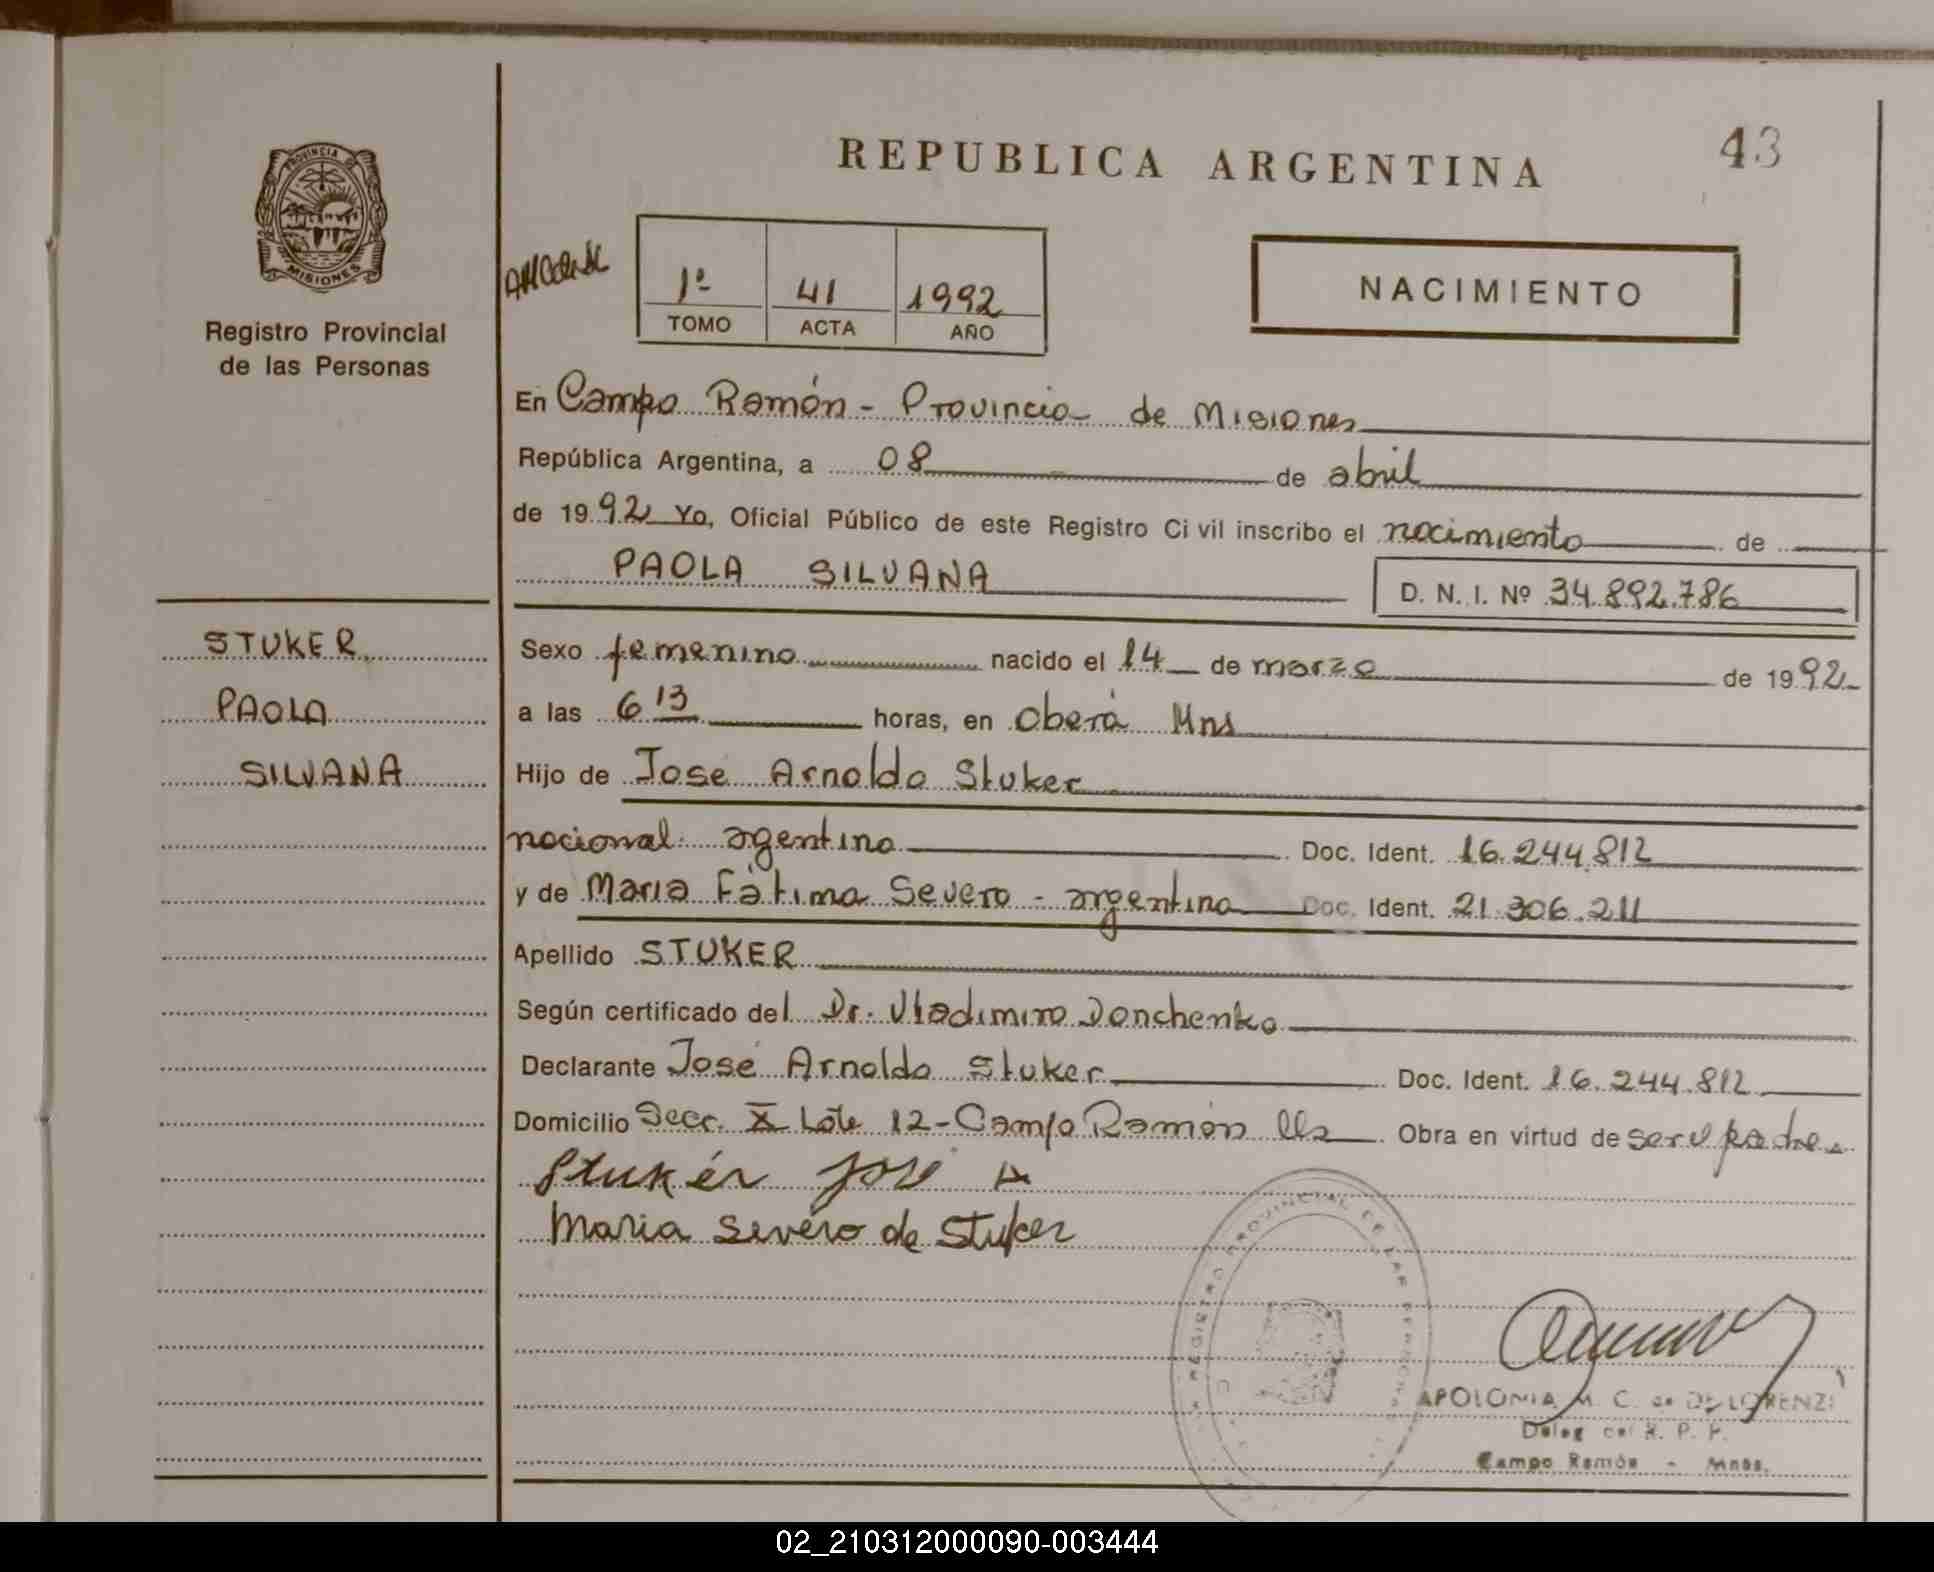 REPUBLICA ARGENTINA
43
PROVINCIA DE
MISIONES
Registro Provincial
de las Personas
1º 41 1992
TOMO ACTA AÑO
NACIMIENTO
En Campo Ramón - Provincia de Misiones
República Argentina, a 08 de abril
de 1992 Yo, Oficial Público de este Registro Civil inscribo el nacimiento de
PAOLA SILVANA
D. N. I. Nº 34.892.786
STUKER
PAOLA
SILVANA
Sexo femenino nacido el 14 de marzo de 1992
a las 6 13 horas, en Oberá Mns
Hijo de José Arnoldo Stuker
nacional. agentino Doc. Ident. 16.244.812
y de María Fátima Severo - argentina Doc. Ident. 21.306.211
Apellido STUKER
Según certificado del Dr. Vladimiro Donchenko
Declarante José Arnoldo Stuker Doc. Ident. 16.244.812
Domicilio Secc. X Lote 12 - Campo Ramón Obra en virtud de ser el padre
Stukér José A
Maria Severo de Stuker
REGISTRO PROVINCIAL DE LAS PERSONAS
APOLONIA M. C. de DE LORENZI
Deleg. del R. P. P.
Campo Ramón - Mnes.
02_210312000090-003444